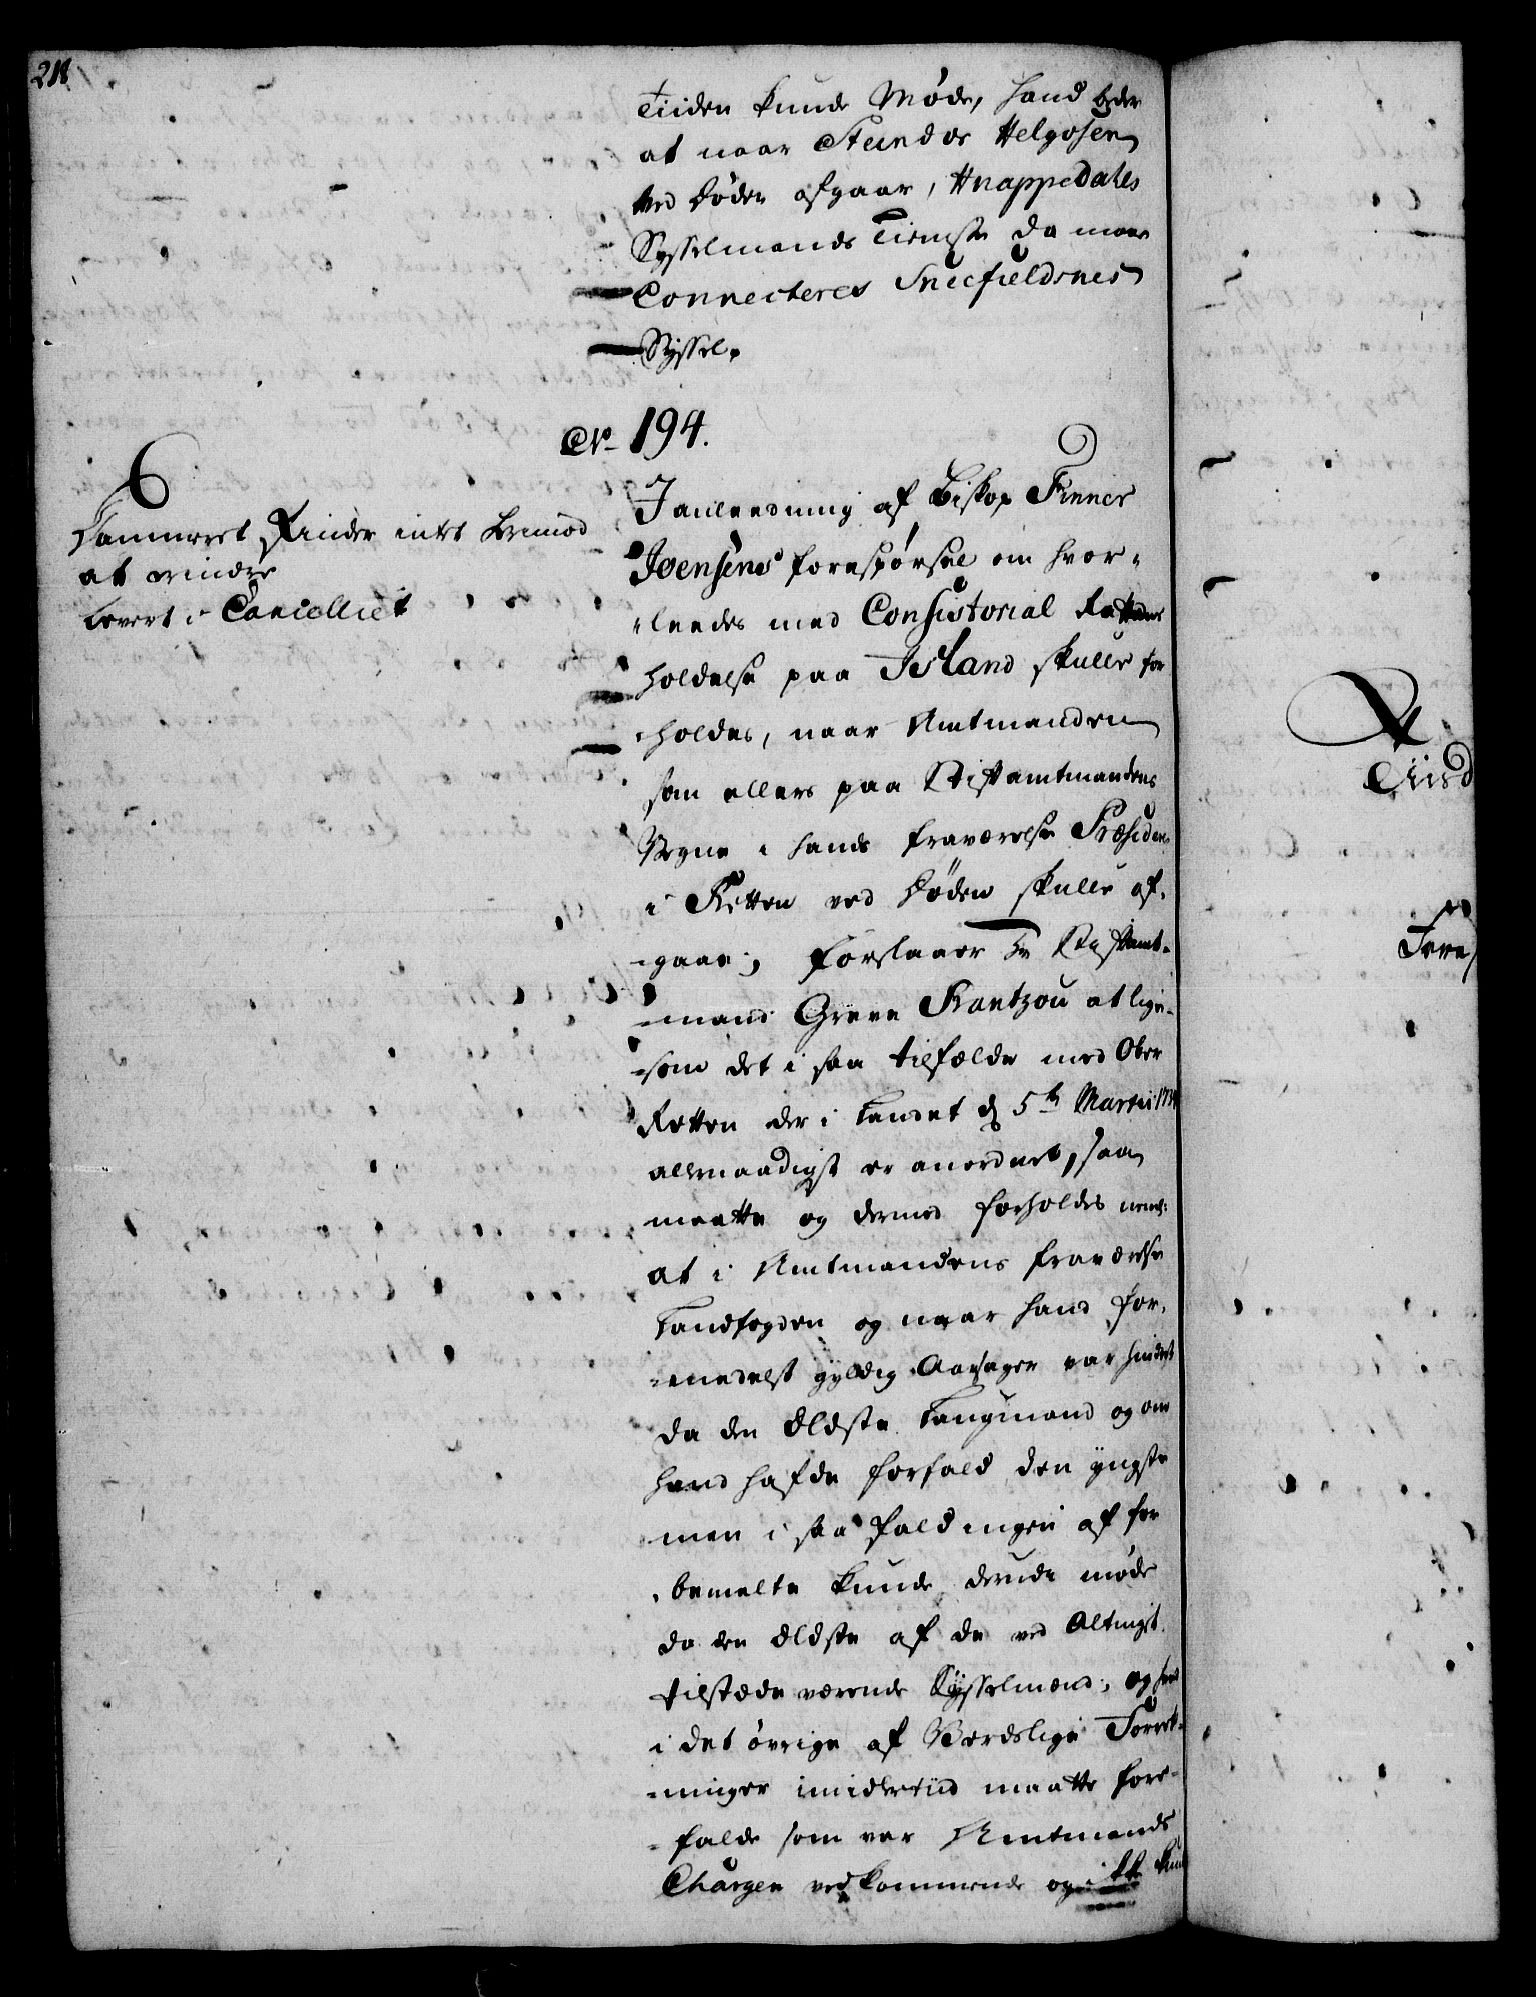 218
Tiiden kunde Møde, hand beder
at naar Steindor Helgosen
ved Døden afgaar, Hnappedahls
Sysselmands Tieniste da maa
Connecteres Sneefieldsnes
Syssel.
No 194.
Cammeret Finder intet herimod
at erindre
Levert i Cancelliet
I anleedning af Biskop Finner
Joensens forespørsel om hvor-
leedes med Consistorial Rettens
holdelse paa Island skulle for
holdes, naar Amtmanden
som ellers paa Stiftamtmandens
Vegne i hands fraværelse Præsiderer
i Retten ved Døden skulle af-
gaae; forslaaer Hr Stiftamt-
mand Greve Rantzou at lige-
som det i saa tilfælde med Ober
Retten der i Landet d 5te Martii
allernaadigst er anordnet, saa
maatte og dermed forholdes neml:
at i Amtmandens fraværelse
Landfogden og naar hand for-
medelst gyldig Aarsager var hindret
da den Eldste Laugmand og om
hand hafde forfald den yngste
men i saa Fald ingen af for
bemelte kunde møde
da den Eldste af de ved Altinget
tilstæde værende Sysselmænd; og hvad
i det øvrige af Verdslige Forret-
ninger imidlertiid maatte fore-
falde som var Amtmands
Chargen vedkommende og ikke kunde